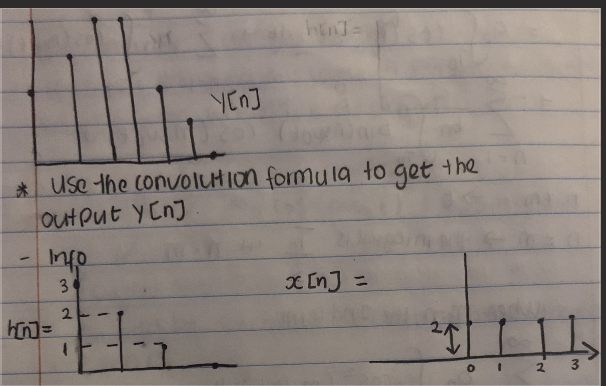 h[n] =
Y[n]
* Use the convolution formula to get the
output Y[n]
- Info
3
x[n] =
2
h[n]=
2
1
0 1 2 3